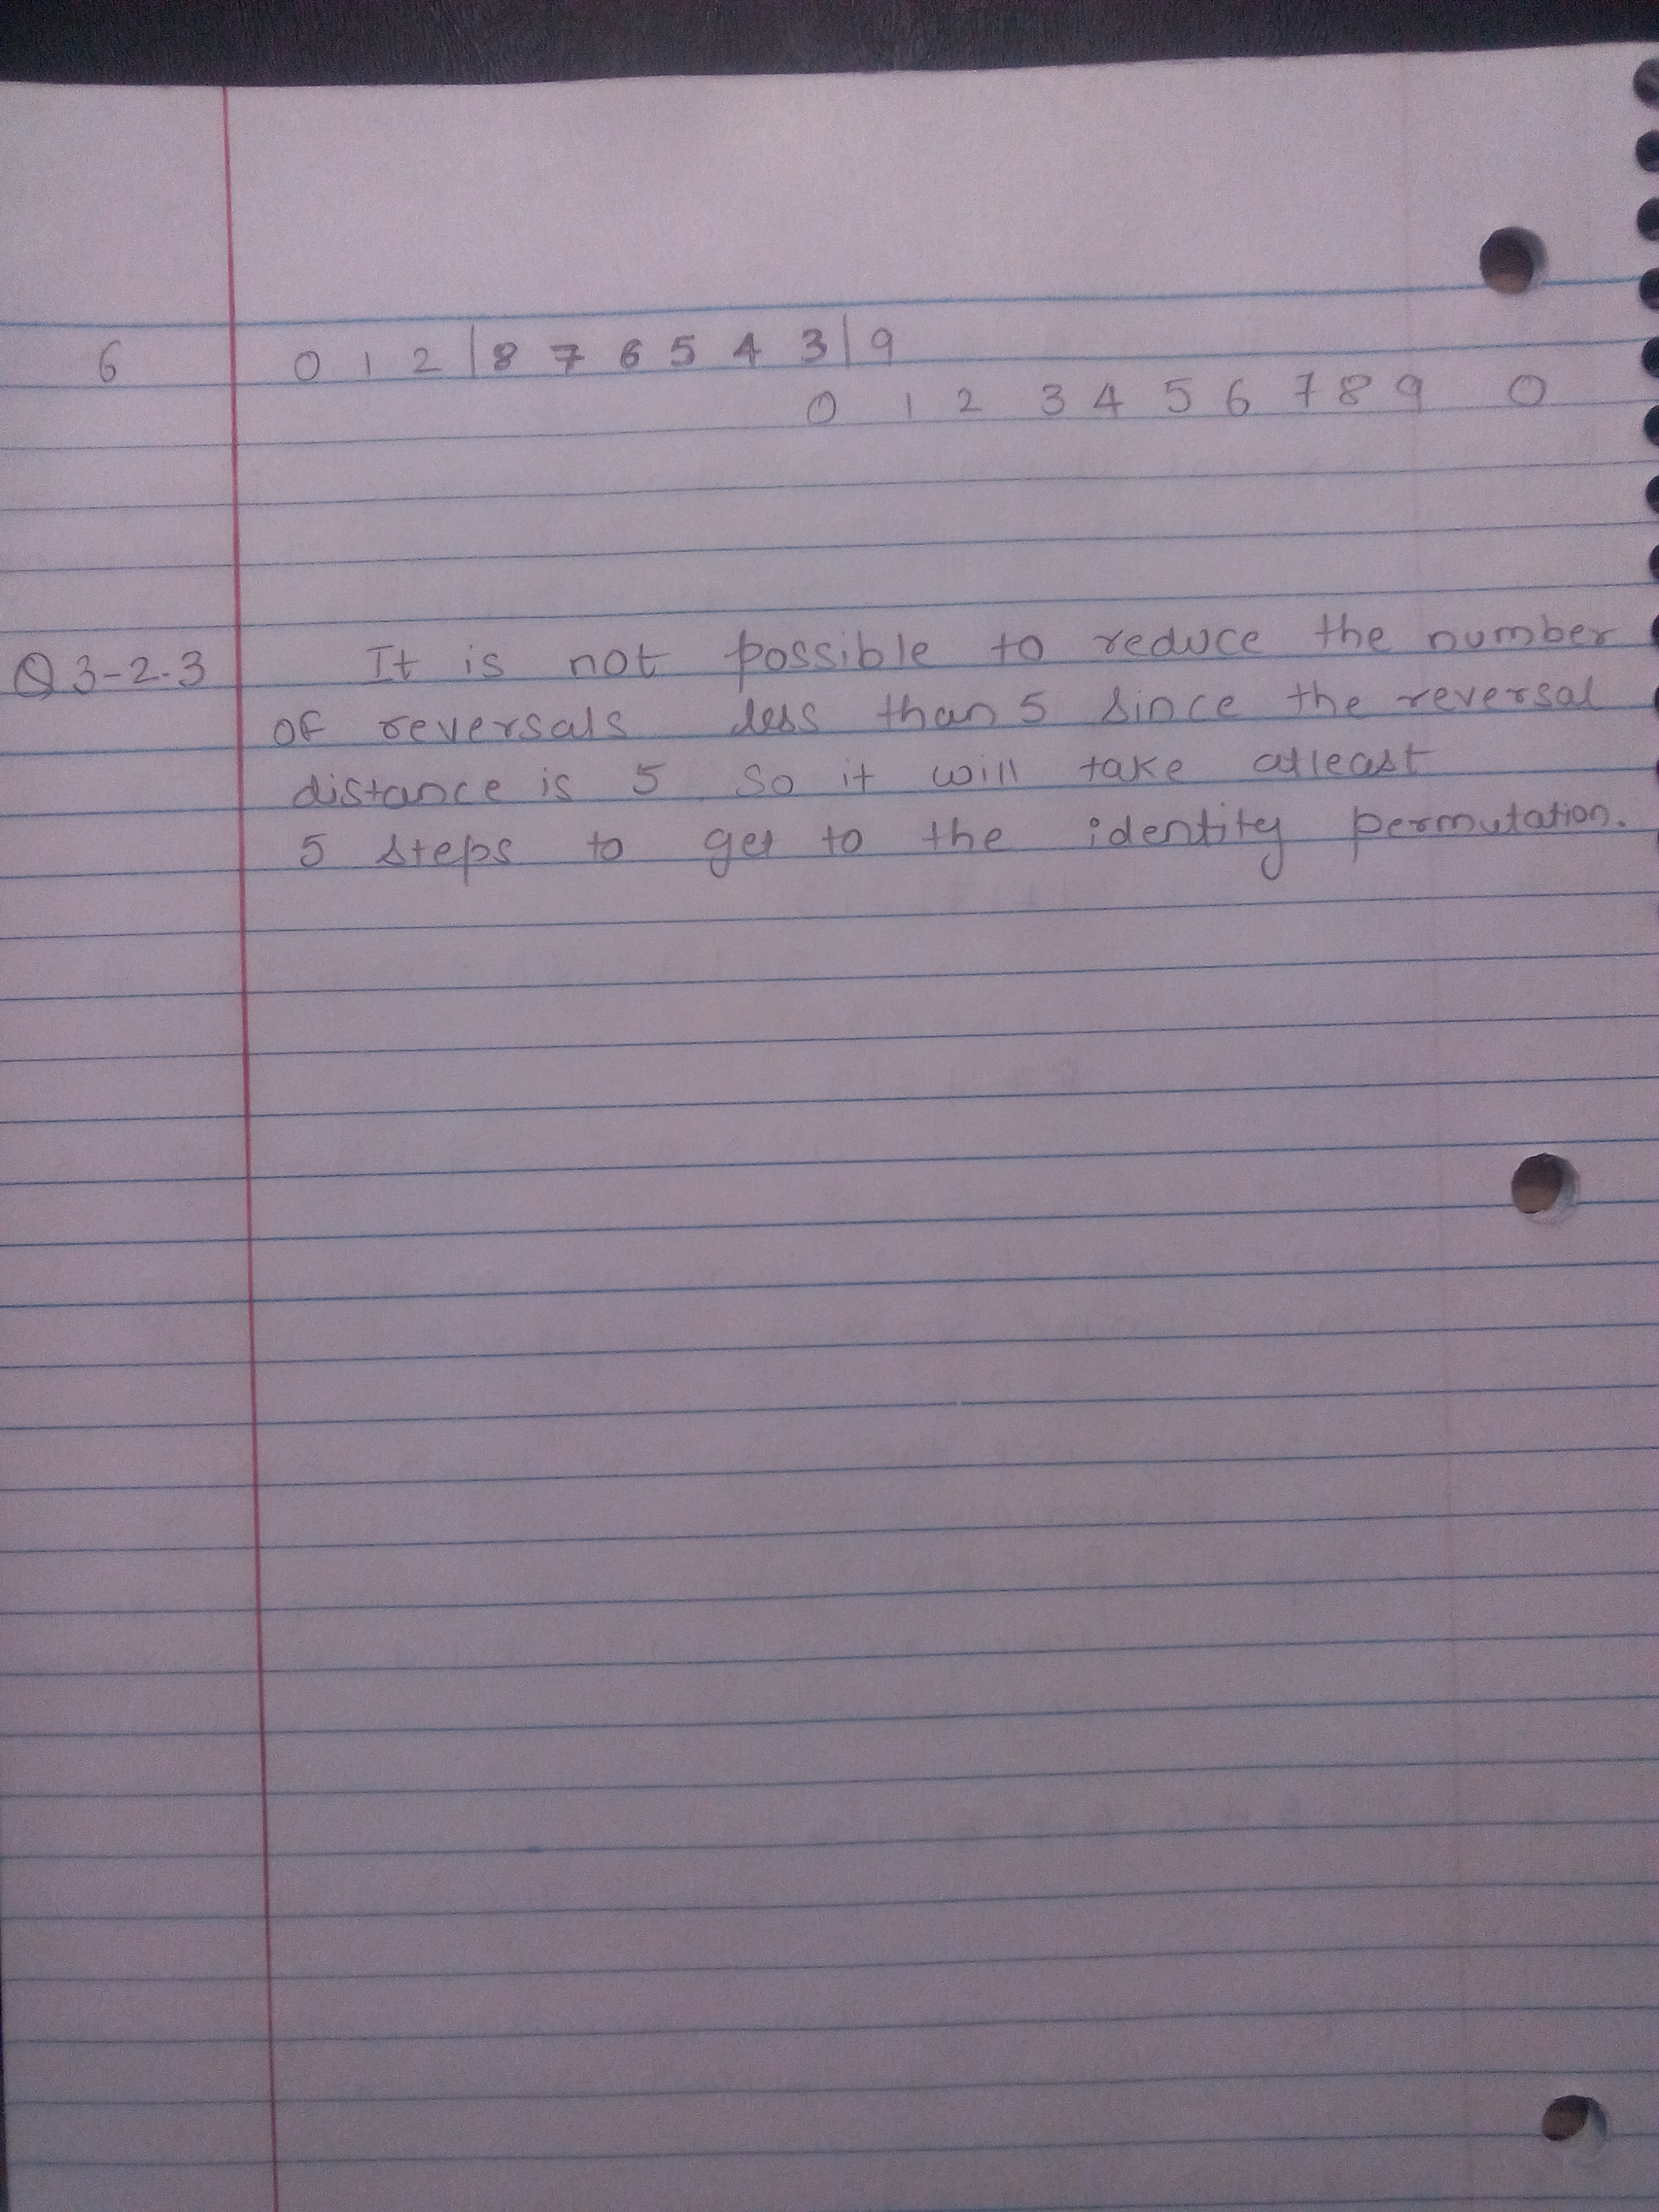 6 0 1 2 | 8 7 6 5 4 3 | 9
0 1 2 3 4 5 6 7 8 9 0
Q 3-2.3 It is not possible to reduce the number
of reversals less than 5 since the reversal
distance is 5 So it will take atleast
5 steps to get to the identity permutation.